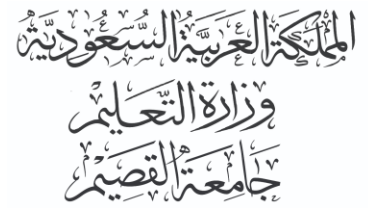 المملكة العربية السعودية
وزارة التعليم
جامعة القصيم